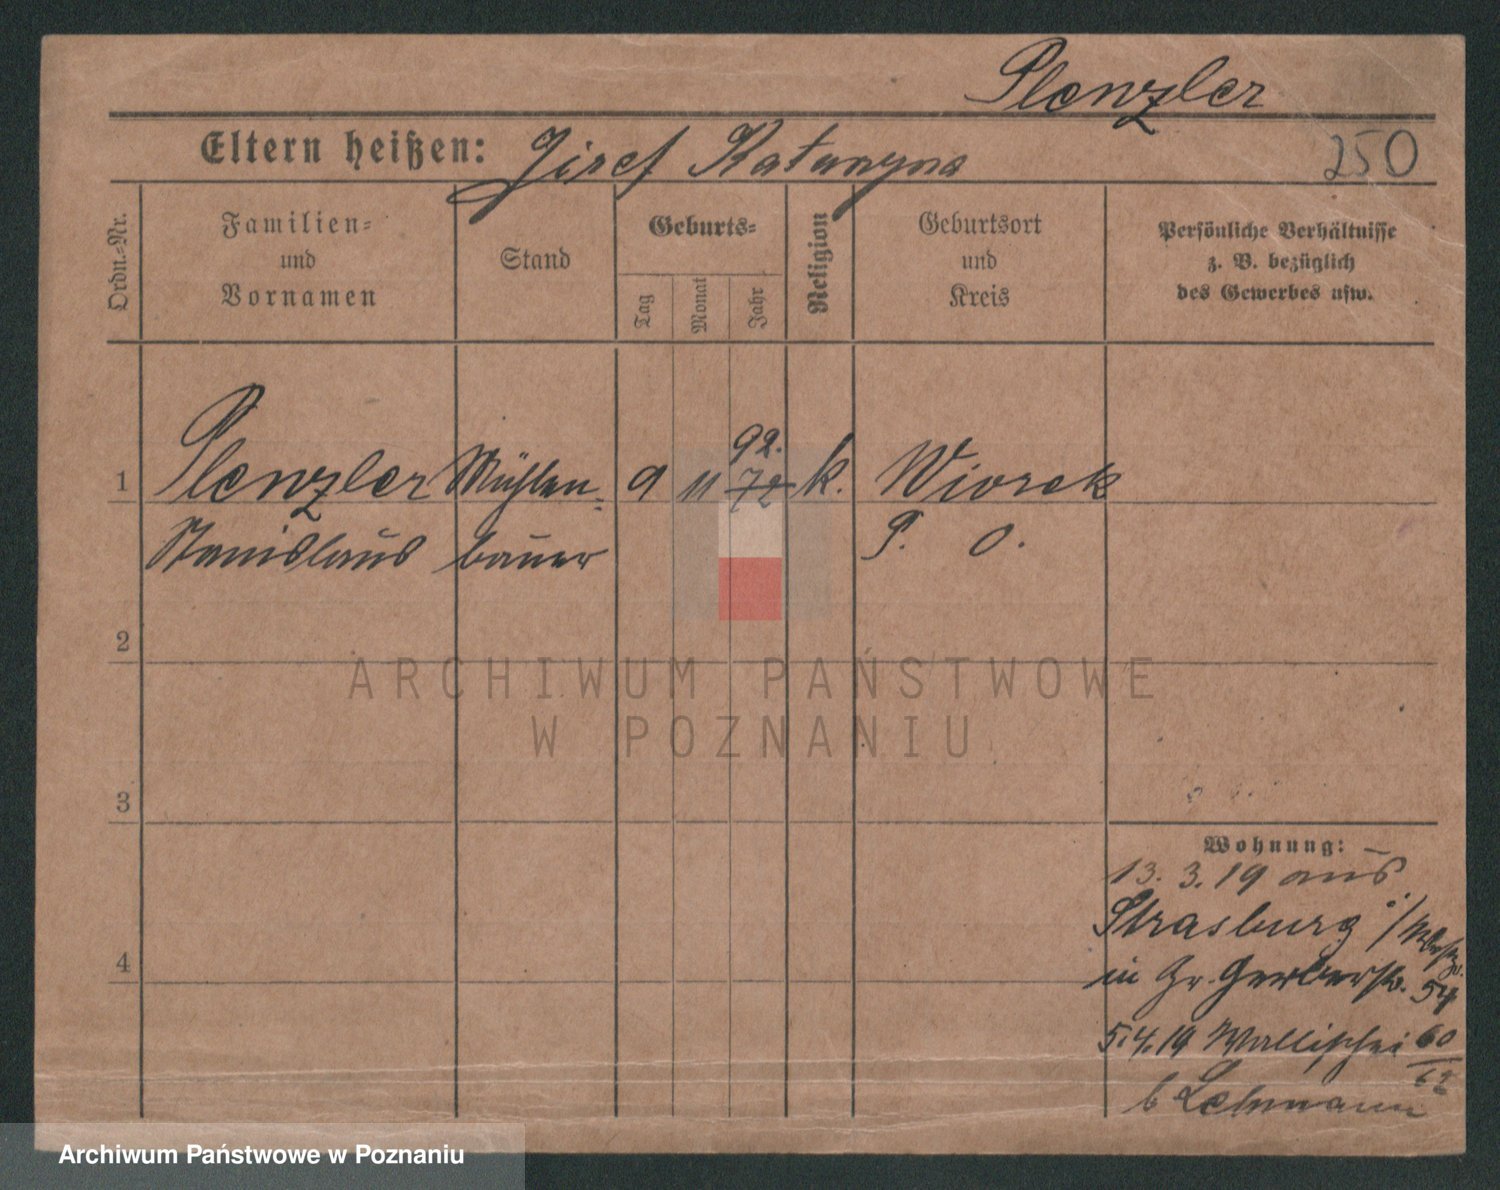 Plenzler
Eltern heißen: Józef Katarzyna
250
Ordn.-Nr.
Familien-
und
Vornamen
Stand
Geburts-
Tag
Monat
Jahr
Religion
Geburtsort
und
Kreis
Persönliche Verhältnisse
z. B. bezüglich
des Gewerbes usw.
92.
1 Plenzler Mühlen- 9 11 72 k. Wiorek
Stanislaus bauer P. O.
2
3
4
Wohnung:
13. 3. 19 aus
Strasburg i/Westpr.
in Gr. Gerberstr. 54
5.4.19 Wallischei 60
62
b Lehmann
ARCHIWUM PAŃSTWOWE
W POZNANIU
Archiwum Państwowe w Poznaniu